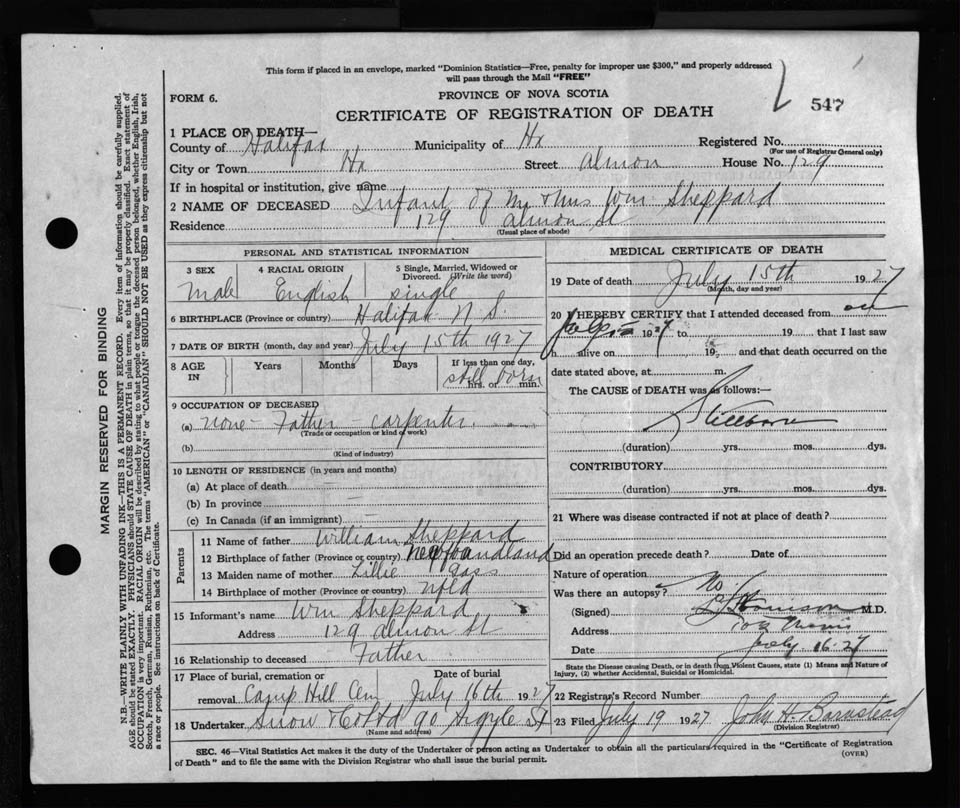 This form if placed in an envelope, marked "Dominion Statistics—Free, penalty for improper use $300," and properly addressed
will pass through the Mail "FREE"
547
FORM 6.
PROVINCE OF NOVA SCOTIA
CERTIFICATE OF REGISTRATION OF DEATH
1 PLACE OF DEATH—
County of Halifax Municipality of Hx Registered No.
(For use of Registrar General only)
City or Town Hx Street Almon House No. 129
If in hospital or institution, give name
2 NAME OF DECEASED Infant of Mr & Mrs Wm. Sheppard
Residence 129 Almon St
(Usual place of abode)
PERSONAL AND STATISTICAL INFORMATION
3 SEX 4 RACIAL ORIGIN 5 Single, Married, Widowed or Divorced. (Write the word)
Male English single
6 BIRTHPLACE (Province or country) Halifax N S.
7 DATE OF BIRTH (month, day and year) July 15th 1927
8 AGE IN Years Months Days If less than one day,
still born
hrs. or min.
9 OCCUPATION OF DECEASED
(a) none - Father - carpenter
(Trade or occupation or kind of work)
(b)
(Kind of industry)
10 LENGTH OF RESIDENCE (in years and months)
(a) At place of death
(b) In province
(c) In Canada (if an immigrant)
Parents
11 Name of father William Sheppard
12 Birthplace of father (Province or country) Newfoundland
13 Maiden name of mother Lillie Gass
14 Birthplace of mother (Province or country) nfld
15 Informant's name Wm Sheppard
Address 129 Almon St
16 Relationship to deceased Father
17 Place of burial, cremation or removal Camp Hill Cem Date of burial July 16th 1927
18 Undertaker Snow & Co Ltd 90 Argyle St
(Name and address)
MEDICAL CERTIFICATE OF DEATH
19 Date of death July 15th 1927
(Month, day and year)
20 I HEREBY CERTIFY that I attended deceased from
1927 to , 19 that I last saw
h alive on , 19 and that death occurred on the
date stated above, at m.
The CAUSE of DEATH was as follows:—
Stillborn
(duration) yrs. mos. dys.
CONTRIBUTORY
(duration) yrs. mos. dys.
21 Where was disease contracted if not at place of death?
Did an operation precede death? Date of
Nature of operation
Was there an autopsy? No
(Signed) M.D.
Address
Date July 16-27
State the Disease causing Death, or in death from Violent Causes, state (1) Means and Nature of
Injury, (2) whether Accidental, Suicidal or Homicidal.
22 Registrar's Record Number
23 Filed July 19 1927 John H. Barnstead
(Division Registrar)
SEC. 46—Vital Statistics Act makes it the duty of the Undertaker or person acting as Undertaker to obtain all the particulars required in the "Certificate of Registration
of Death" and to file the same with the Division Registrar who shall issue the burial permit.
(OVER)
MARGIN RESERVED FOR BINDING
N.B.—WRITE PLAINLY WITH UNFADING INK—THIS IS A PERMANENT RECORD. Every item of information should be carefully supplied.
AGE should be stated EXACTLY. PHYSICIANS should STATE CAUSE OF DEATH in plain terms, so that it may be properly classified. Exact statement of
OCCUPATION is very important. RACIAL ORIGIN will be described by stating to what people or tongue the deceased person belonged, whether English, Irish,
Scotch, French, German, Russian, Ruthenian, etc. The terms "AMERICAN" or "CANADIAN" SHOULD NOT BE USED as they express citizenship but not
a race or people. See instructions on back of Certificate.